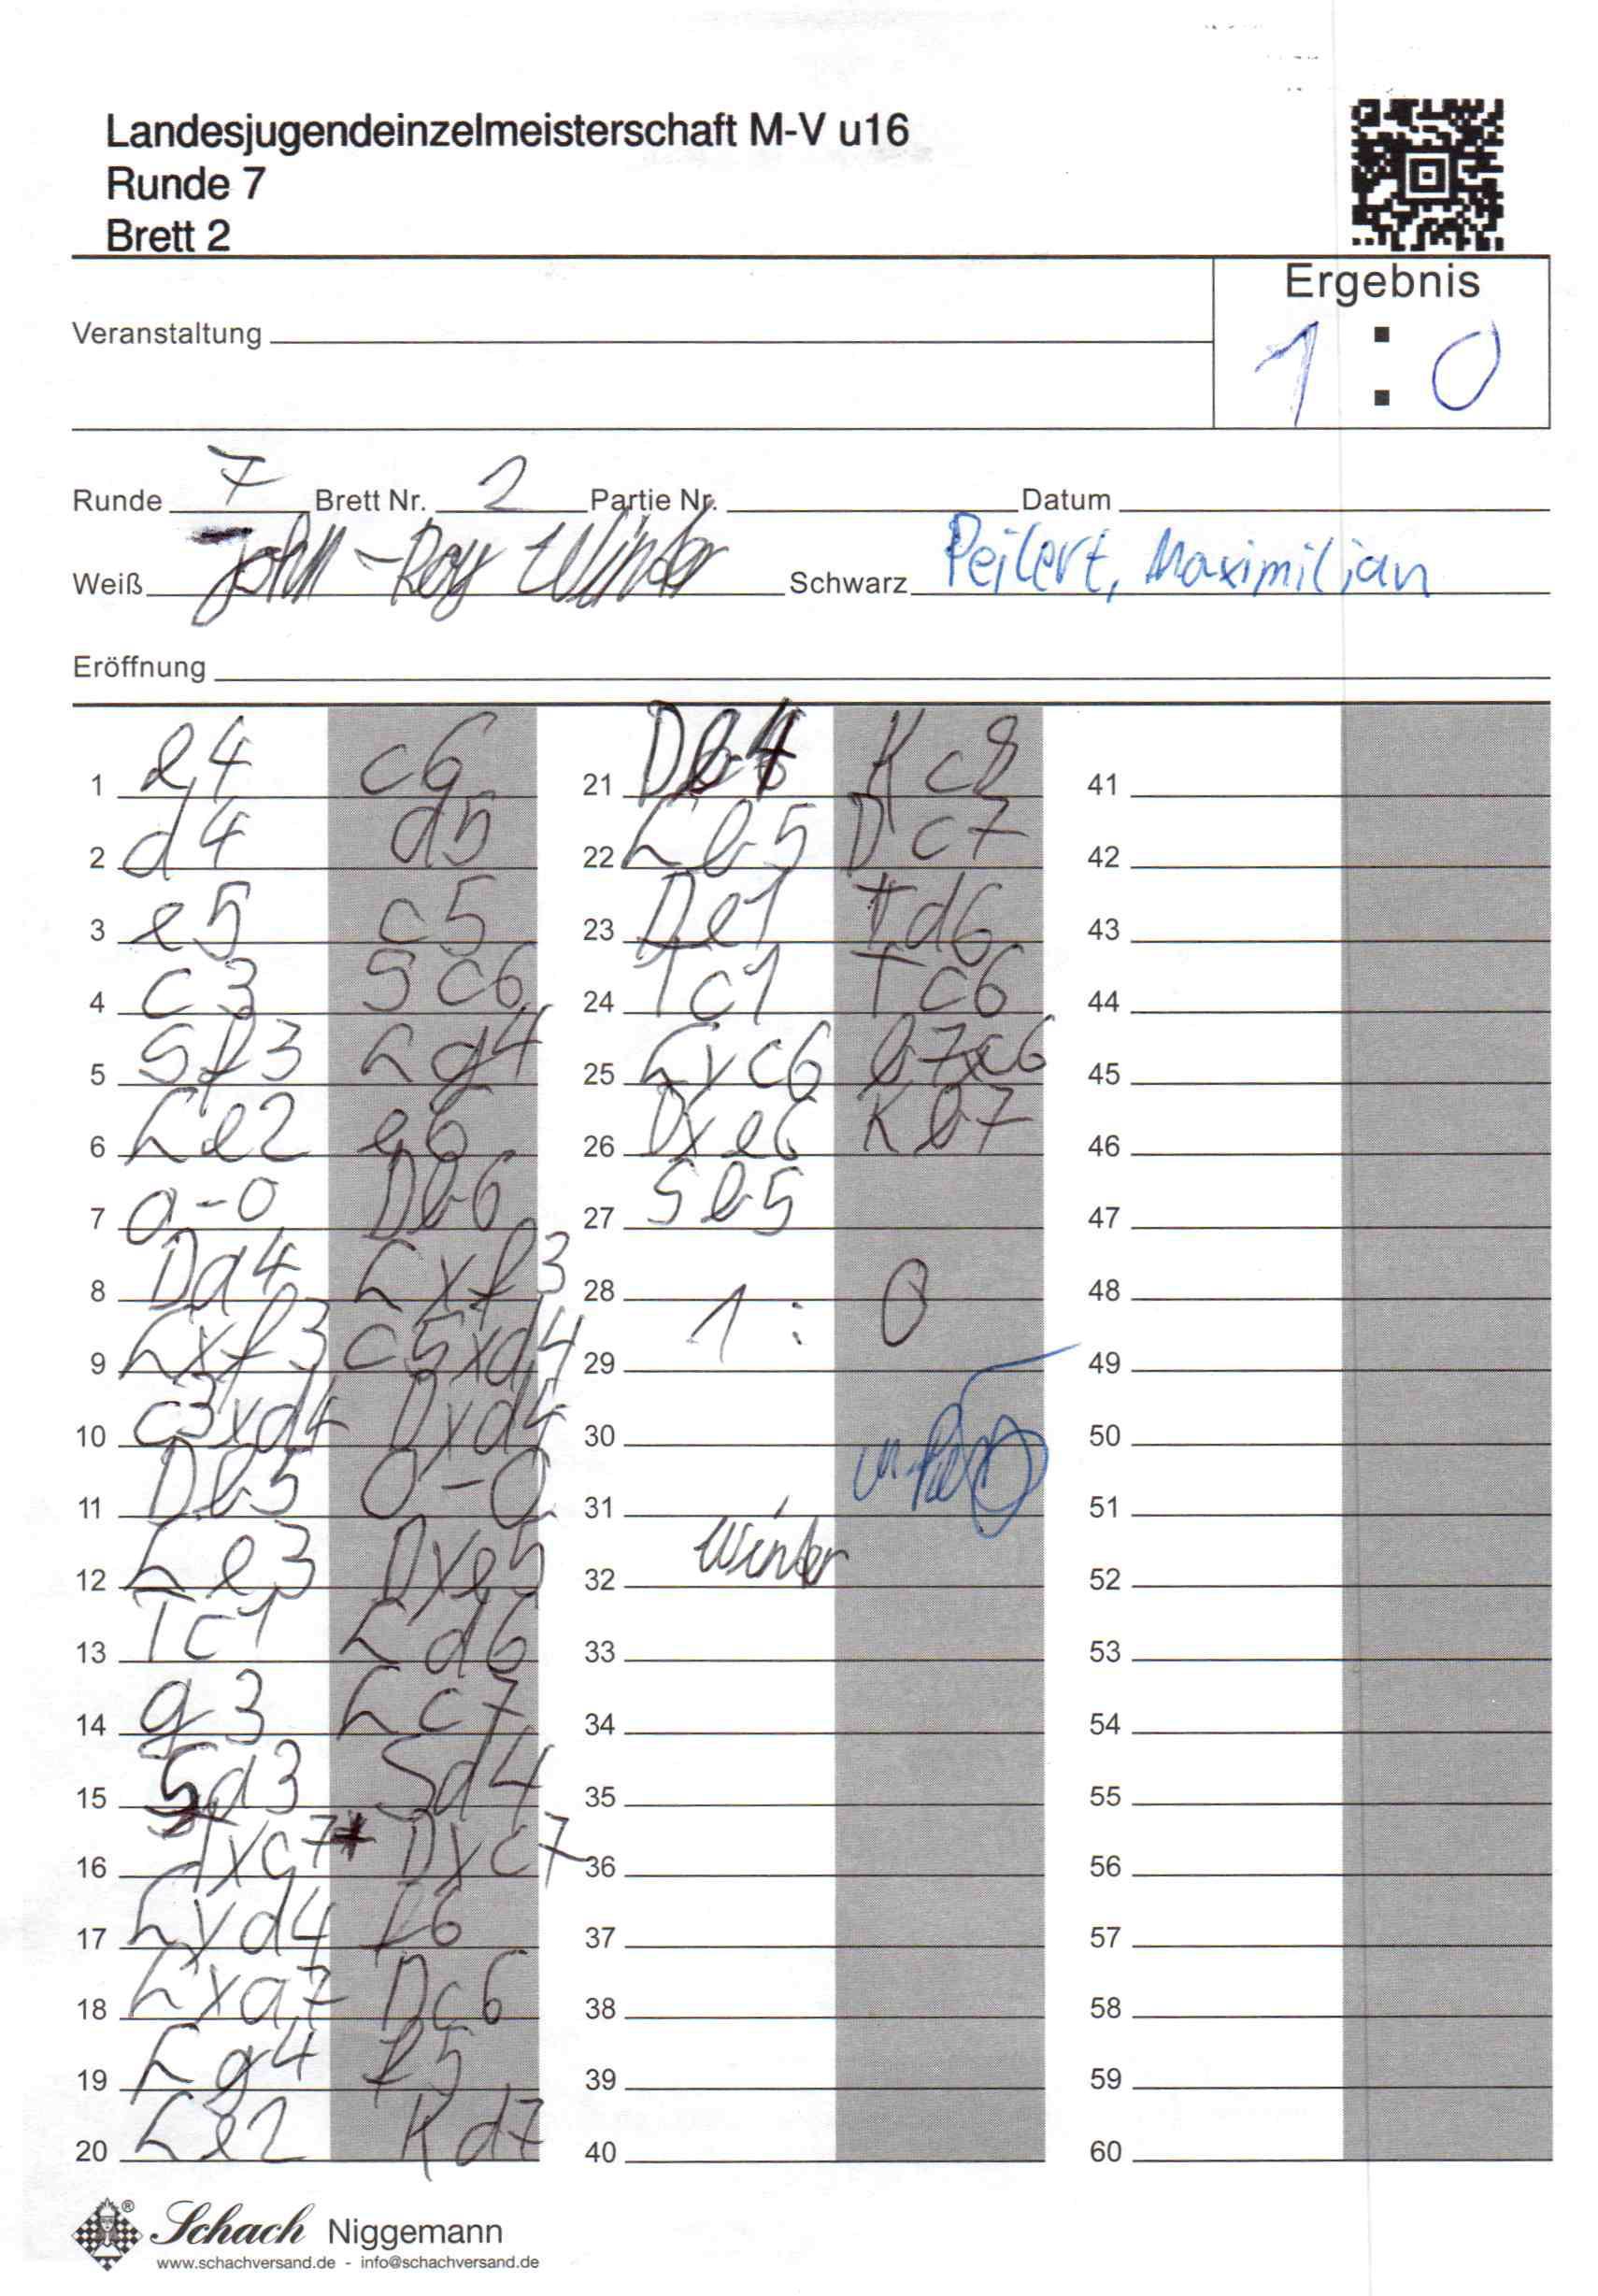 Landesjugendeinzelmeisterschaft M-V u16
Runde 7
Brett 2
Ergebnis
1 : 0
Veranstaltung
Runde 7 Brett Nr. 2 Partie Nr. Datum
Weiß John-Roy Winter Schwarz Peilert, Maximilian
Eröffnung
1 e4 c6
2 d4 d5
3 e5 c5
4 c3 Sc6
5 Sf3 Lg4
6 Le2 e6
7 0-0 Db6
8 Da4 Lxf3
9 Lxf3 c5xd4
10 c3xd4 Dxd4
11 Db5 0-0-0
12 Le3 Dxe5
13 Tc1 Ld6
14 g3 Lc7
15 Sd3 Sd4
16 Txc7 Dxc7
17 Lxd4 f6
18 Lxa7 Dc6
19 Lg4 f5
20 Le2 Kd7
21 Db4 Kc8
22 Lb5 Dc7
23 De1 Td6
24 Tc1 Tc6
25 Lxc6 b7xc6
26 Dxe6 Kb7
27 Sb5
28 1 : 0
29
30
31
32 Winter
33
34
35
36
37
38
39
40
41
42
43
44
45
46
47
48
49
50
51
52
53
54
55
56
57
58
59
60
Schach Niggemann
www.schachversand.de - info@schachversand.de